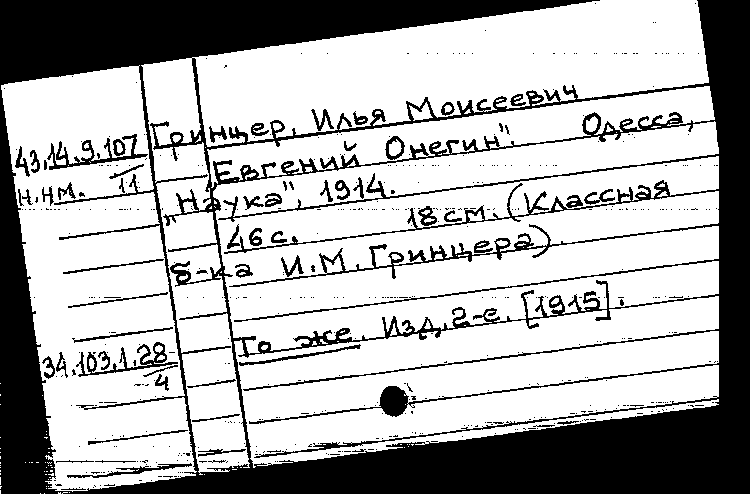 43.14.9.107 Гринцер, Илья Моисеевич
11
н.нм. „Евгений Онегин". Одесса,
„Наука", 1914.
46 с. 18 см. (Классная
б-ка И.М. Гринцера).
34.103.1.28 То же. Изд. 2-е. [1915].
4